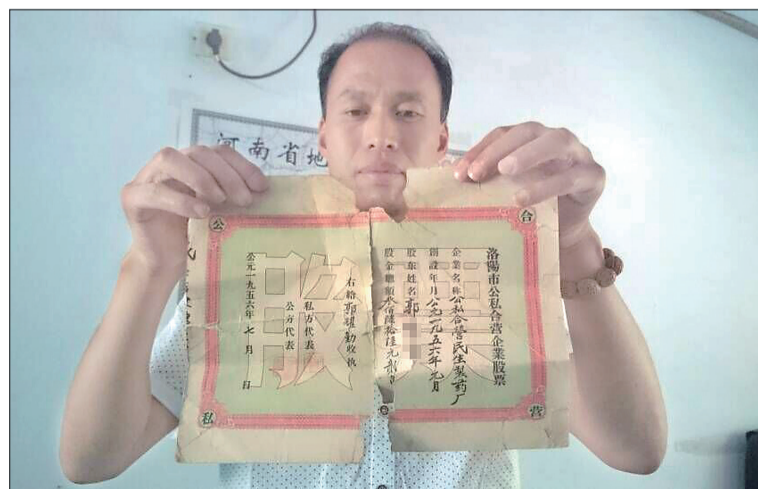 河南省地
公
合
私
营
股票
洛陽市公私合营企業股票
企業名称公私合营民生製药厂
創設年月公元一九五六年元月
股东姓名郭
股金總額
右給郭耀勤收执
私方代表
公方代表
公元一九五六年七月 日